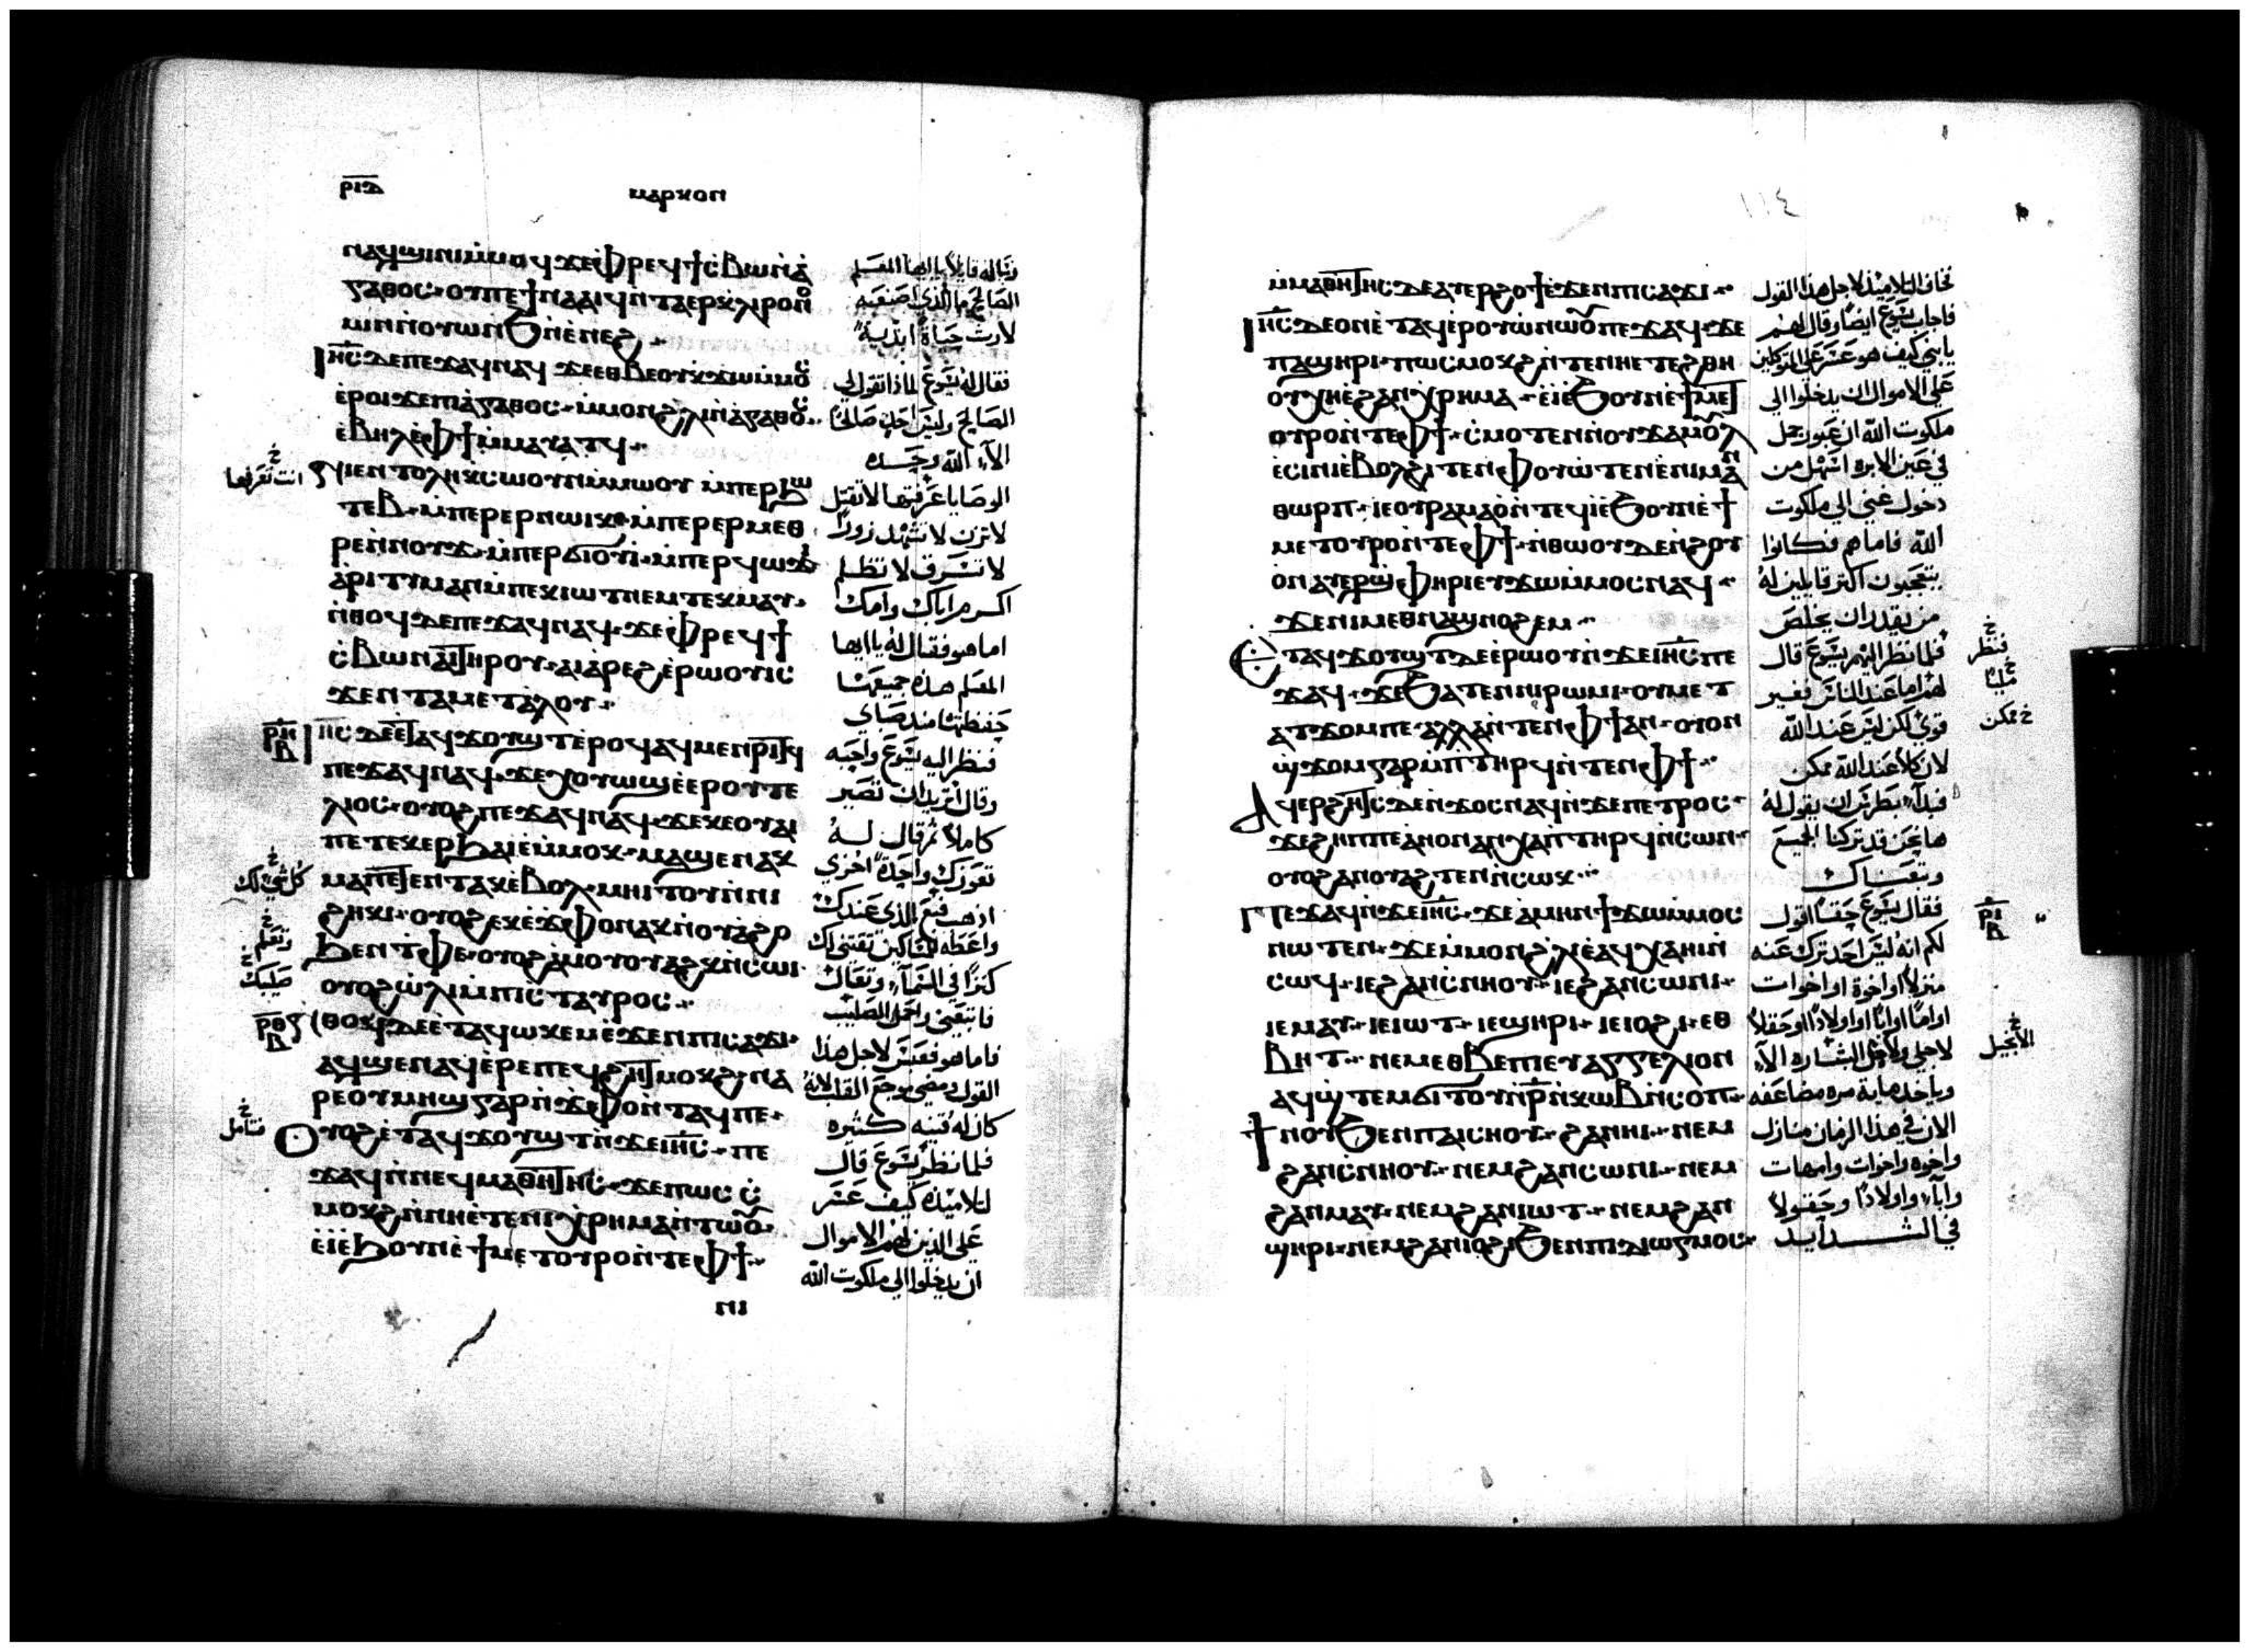 ⲣⲓⲇ
ⲙⲁⲣⲕⲟⲛ
ⲛⲁϥϣⲓⲛⲓⲙ̀ⲙⲟϥϫⲉⲫ̀ⲣⲉϥϯⲥ̀ⲃⲱⲛ̀ⲁ̀
ⲅⲁⲑⲟⲥ · ⲟⲩⲡⲉϯⲛⲁⲁⲓϥⲛ̀ⲧⲁⲉⲣⲕ̀ⲗⲏⲣⲟⲛ
ⲛ̀ⲟⲩⲱⲛϧⲛ̀ⲉ̀ⲛⲉϩ
ⲓⲏ̅ⲥ̅ⲇⲉⲡⲉϫⲁϥⲛⲁϥ ϫⲉⲉⲑⲃⲉⲟⲩⲕϫⲱⲙ̀ⲙⲟ
ⲉ̀ⲣⲟⲓϫⲉⲡⲓⲁ̀ⲅⲁⲑⲟⲥ · ⲙ̀ⲙⲟⲛϩ̀ⲗⲓⲛ̀ⲁ̀ⲅⲁⲑⲟ
ⲉ̀ⲃⲏⲗⲉ̀ⲫϯⲙ̀ⲙⲁⲩⲁⲧϥ
ⲛⲓⲉⲛⲧⲟⲗⲏⲕⲥⲱⲟⲩⲛⲙ̀ⲙⲱⲟⲩ ⲙ̀ⲡⲉⲣϧⲱ
ⲧⲉⲃ · ⲙ̀ⲡⲉⲣⲉⲣⲛⲱⲓⲕ · ⲙ̀ⲡⲉⲣⲉⲣⲙⲉⲑ
ⲣⲉⲛ̀ⲛⲟⲩϫ · ⲙ̀ⲡⲉⲣϭⲓⲟⲩⲓ̀ · ⲙ̀ⲡⲉⲣϥⲱϫⲓ
ⲁ̀ⲣⲓⲧⲓⲙⲁⲛⲙ̀ⲡⲉⲕⲓⲱⲧⲛⲉⲙⲧⲉⲕⲙⲁⲩ ·
ⲛ̀ⲑⲟϥⲇⲉⲡⲉϫⲁϥⲛⲁϥ · ϫⲉⲫ̀ⲣⲉϥϯ
ⲥ̀ⲃⲱⲛⲁⲓⲧⲏⲣⲟⲩ · ⲁⲓⲁ̀ⲣⲉϩⲉ̀ⲣⲱⲟⲩⲓⲥ
ϫⲉⲛⲧⲁⲙⲉⲧⲁ̀ⲗⲟⲩ
ⲓⲏ̅ⲥ̅ⲇⲉⲉ̀ⲧⲁϥϫⲟⲩϣⲧⲉ̀ⲣⲟϥⲁϥⲙⲉⲛⲣⲓⲧϥ
ⲡⲉϫⲁϥⲛⲁϥ · ϫⲉⲭⲟⲩⲱϣⲉ̀ⲉⲣⲟⲩⲧⲉ
ⲗⲓⲟⲥ · ⲟⲩⲟϩⲡⲉϫⲁϥⲛⲁϥ · ϫⲉⲕⲉⲟⲩⲁⲓ
ⲡⲉⲧⲉⲕⲉⲣϧⲁⲓⲉ̀ⲙ̀ⲙⲟⲕ · ⲙⲁϣⲉⲛⲁⲕ
ⲙⲁⲡⲉⲧⲉⲛⲧⲁⲕⲉ̀ⲃⲟⲗ · ⲙⲏⲓⲧⲟⲩⲛ̀ⲛⲓ
ϩⲏⲕⲓ · ⲟⲩⲟϩⲉⲕⲉ̀ϫⲫⲟⲛⲁⲕⲛ̀ⲟⲩⲁ̀ϩⲟ
ϧⲉⲛⲧ̀ⲫⲉ · ⲟⲩⲟϩⲁ̀ⲙⲟⲩⲟⲩⲁϩⲕⲛ̀ⲥⲱⲓ
ⲟⲩⲟϩⲱ̀ⲗⲓⲙ̀ⲡⲓⲥ̀ⲧⲁⲩⲣⲟⲥ
ⲛⲑⲟϥⲇⲉⲉ̀ⲧⲁϥⲱⲕⲉⲙⲉ̀ϫⲉⲛⲡⲓⲥⲁϫⲓ
ⲁϥϣⲉⲛⲁϥⲉ̀ⲣⲉⲡⲉϥϩⲏⲧⲙⲟⲕϩ · ⲛⲁ
ⲣⲉⲟⲩⲙⲏϣⲅⲁⲣⲛ̀ϫⲫⲟⲛ̀ⲧⲁϥⲡⲉ
ⲟⲩⲟϩⲉ̀ⲧⲁϥϫⲟⲩϣⲧⲛ̀ϫⲉⲓⲏ̅ⲥ̅ · ⲡⲉ
ϫⲁϥⲛ̀ⲛⲉϥⲙⲁⲑⲏⲧⲏⲥ · ϫⲉⲡⲱⲥ ⲥ̀
ⲙⲟⲕϩⲛ̀ⲛⲏⲉ̀ⲧⲉⲛⲓⲭ̀ⲣⲏⲙⲁⲛ̀ⲧⲱⲟ
ⲉ̀ⲓⲉ̀ϧⲟⲩⲛⲉ̀ϯⲙⲉⲧⲟⲩⲣⲟⲛ̀ⲧⲉⲫϯ
ⲛⲓ
فساله قايلاً يا ايها المعلم
الصالح ما الذي اصنعه
لارث حياة ابدية
فقال له يسوع لماذا تقول لي
الصالح وليس احد صالحًا
الا الله وحده
الوصايا عرفتها لا تقتل
لا تزن لا تشهد زورًا
لا تسرق لا تظلم
اكرم اباك وامك
اما هو فقال له يا ايها
المعلم هذه جميعها
حفظتها منذ صباي
فنظر اليه يسوع واحبه
وقال اتريد ان تصير
كاملاً ثم قال له
تعوزك واحدة اخري
اذهب فبع الذي عندك
واعطه للمساكين تقتني لك
كنزًا في السماء وتعال
فاتبعني واحمل الصليب
فاما هو فعبس لاجل هذا
القول ومضي موجع القلب لانه
كان له قنيه كثيره
فلما نظر يسوع قال
لتلاميذه كيف عسر
علي الذين لهم الاموال
ان يدخلوا الي ملكوت الله
انت تعرفها
كل شي لك
وتعلم
صليبك
فتامل
ⲣⲏ
ⲃ
ⲣⲑ
ⲃ
١١٤
ⲙ̀ⲙⲁⲑⲏⲧⲏⲥⲇⲉⲁⲩⲉⲣϩⲟϯⲉ̀ϫⲉⲛⲡⲓⲥⲁϫⲓ
ⲓⲏ̅ⲥ̅ⲇⲉⲟⲛⲉ̀ⲧⲁϥⲉ̀ⲣⲟⲩⲱ̀ⲛⲱⲟⲩⲡⲉϫⲁϥ · ϫⲉ
ⲛⲁϣⲏⲣⲓ · ⲡⲱⲥⲙⲟⲕϩⲛ̀ⲧⲉⲛⲏⲉⲧⲉϩⲑⲏ
ⲟⲩⲭⲏⲉ̀ϩⲁⲛⲭ̀ⲣⲏⲙⲁ · ⲉ̀ⲓⲉ̀ϧⲟⲩⲛⲉ̀ϯⲙⲉⲧ
ⲟⲩⲣⲟⲛ̀ⲧⲉⲫϯ · ⲥ̀ⲙⲟⲧⲉⲛⲛ̀ⲟⲩϫⲁⲙⲟⲩⲗ
ⲉ̀ⲥⲓⲛⲓⲉ̀ⲃⲟⲗϩⲓⲧⲉⲛⲫ̀ⲟⲩⲱ̀ⲧⲉⲛⲉ̀ⲛⲓⲙⲁⲛ
ⲑⲱⲣⲡ · ⲓⲉⲟⲩⲣⲁⲙⲁⲟ̀ⲛ̀ⲧⲉϥⲓ̀ⲉ̀ϧⲟⲩⲛⲉ̀ϯ
ⲙⲉⲧⲟⲩⲣⲟⲛ̀ⲧⲉⲫϯ · ⲛ̀ⲑⲱⲟⲩⲇⲉⲛ̀ϩⲟⲩ
ⲟ̀ⲛⲁⲩⲉⲣϣ̀ⲫⲏⲣⲓⲉⲩϫⲱⲙ̀ⲙⲟⲥⲛⲁϥ
ϫⲉⲛⲓⲙⲉⲑⲛⲁϣⲛⲟϩⲉⲙ
ⲉⲧⲁϥϫⲟⲩϣⲧⲇⲉⲉ̀ⲣⲱⲟⲩⲛ̀ϫⲉⲓⲏ̅ⲥ̅ⲡⲉ
ϫⲁϥ · ϫⲉϧⲁⲧⲉⲛⲛⲓⲣⲱⲙⲓ · ⲟⲩⲙⲉⲧ
ⲁⲧϫⲟⲙⲡⲉ · ⲁⲗⲗⲁⲛ̀ⲧⲉⲛⲫϯⲁⲛ · ⲟⲩⲟⲛ
ϣ̀ϫⲟⲙⲅⲁⲣⲙ̀ⲡⲧⲏⲣϥⲛ̀ⲧⲉⲛⲫϯ
ⲁϥⲉⲣϩⲏⲧⲥⲇⲉⲛ̀ϫⲟⲥⲛⲁϥⲛ̀ϫⲉⲡⲉⲧⲣⲟⲥ
ϫⲉϩⲏⲡⲡⲉⲁ̀ⲛⲟⲛⲁⲛⲭⲁⲡⲧⲏⲣϥⲛ̀ⲥⲱⲛ
ⲟⲩⲟϩⲁⲛⲟⲩⲁϩⲧⲉⲛⲛ̀ⲥⲱⲕ
ⲡⲉϫⲁϥⲛ̀ϫⲉⲓⲏ̅ⲥ̅ · ϫⲉⲁ̀ⲙⲏⲛϯϫⲱⲙ̀ⲙⲟⲥ
ⲛⲱⲧⲉⲛ · ϫⲉⲙ̀ⲙⲟⲛϩ̀ⲗⲓⲉ̀ⲁϥⲭⲁⲏⲓⲛ̀
ⲥⲱϥ · ⲓⲉϩⲁⲛⲥ̀ⲛⲏⲟⲩ · ⲓⲉϩⲁⲛⲥⲱⲛⲓ
ⲓⲉⲙⲁⲩ · ⲓⲉⲓⲱⲧ · ⲓⲉϣⲏⲣⲓ · ⲓⲉⲓⲟϩⲓ · ⲉⲑ
ⲃⲏⲧ · ⲛⲉⲙⲉⲑⲃⲉⲡⲓⲉⲩⲁⲅⲅⲉⲗⲓⲟⲛ
ⲁϥϣ̀ⲧⲉⲙϭⲓⲧⲟⲩⲛ̀ⲣ̅ⲛ̀ⲕⲱⲃⲛ̀ⲥⲟⲡ
ϯⲛⲟⲩϧⲉⲛⲡⲁⲓⲥⲏⲟⲩ · ϩⲁⲛⲏⲓ · ⲛⲉⲙ
ϩⲁⲛⲥ̀ⲛⲏⲟⲩ · ⲛⲉⲙϩⲁⲛⲥⲱⲛⲓ · ⲛⲉⲙ
ϩⲁⲛⲙⲁⲩ · ⲛⲉⲙϩⲁⲛⲓⲱⲧ · ⲛⲉⲙϩⲁⲛ
ϣⲏⲣⲓ · ⲛⲉⲙϩⲁⲛⲓⲟϩⲓϧⲉⲛⲡⲓⲇⲓⲱⲅⲙⲟⲥ
فخاف التلاميذ لاجل هذا القول
فاجاب يسوع ايضًا وقال لهم
يا بني كيف هو عسر علي المتوكلين
علي الاموال ان يدخلوا الي
ملكوت الله ان عبور جمل
في عين الابره اسهل من
دخول غني الي ملكوت
الله فاما هم فكانوا
يتعجبون اكتر قايلين له
من يقدر ان يخلص
فلما نظر اليهم يسوع قال
لهم اما عند الناس فغير
قوي لكن ليس عند الله
لان كلاً عند الله ممكن
فبدا بطرس ان يقول له
ها نحن قد تركنا الجميع
وتبعناك
فقال يسوع حقًا اقول
لكم انه ليس احد ترك عنه
منزلاً او اخوة او اخوات
او امًا او ابًا او اولادًا او حقلاً
لاجلي ولاجل البشاره الا
وياخذها ماية مره مضاعفه
الان في هذا الزمان منازل
واخوه واخوات وامهات
واباء واولادًا وحقولاً
في الشدايد
فنظر
ممكن
الانجيل
ⲣⲓ
ⲃ